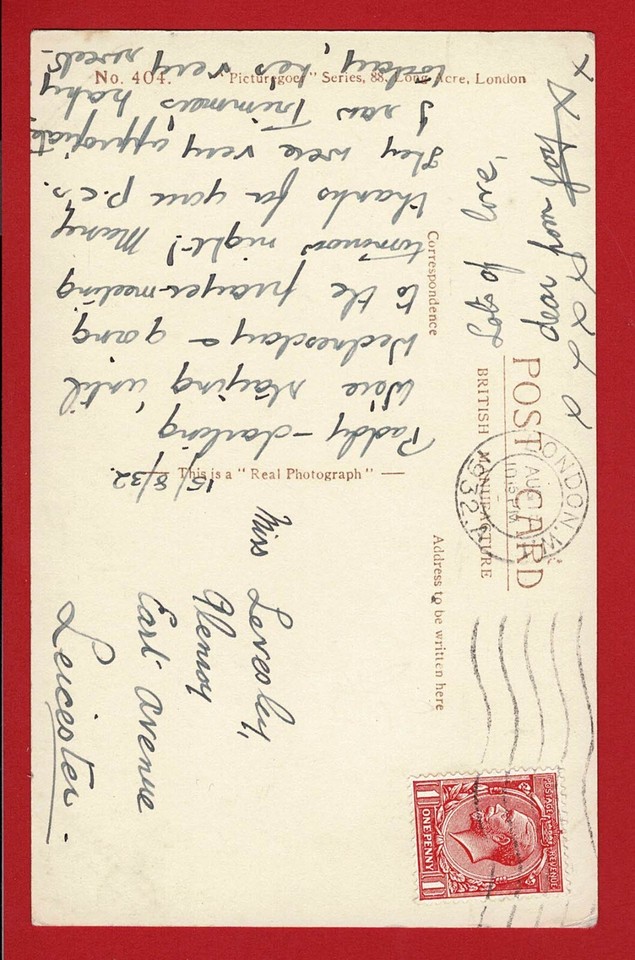 No. 404. "Picturegoer" Series, 88, Long Acre, London
POST CARD
BRITISH MANUFACTURE
Correspondence
Address to be written here
This is a "Real Photograph"
15/8/32.
Paddy-darling
We're staying until
Wednesday & going
to the prayer-meeting
tomorrow night! Many
thanks for your p.c's.
They were very appropriate,
I saw Trimmers baby
today, he's very sweet-
Lots of love,
dear from
Miss Levesley,
Glenroy
Earl Avenue
Leicester.
LONDON.
AUG
1932
POSTAGE REVENUE
ONE PENNY
1 1